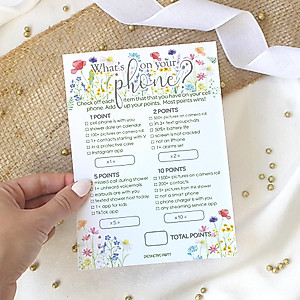 What's on your
phone?
Check off each item that that you have on your cell
phone. Add up your points. Most points wins!
1 POINT
cell phone is with you
shower date on calendar
100+ pictures on camera roll
1+ contacts starting with V
in a protective case
Instagram app
x1=
2 POINTS
50+ pictures on camera roll
in 3+ text groupchats
30%+ battery life
screen is not cracked
not an iPhone
1+ alarms set
x2=
5 POINTS
missed call during shower
1+ unheard voicemails
earbuds are with you
texted shower host today
1+ app for kids
TikTok app
x5=
10 POINTS
1500+ pictures on camera roll
200+ contacts
5+ pictures from my shower
not a smart phone
phone charger is with you
any streaming service app
x10=
TOTAL POINTS
DISTINCTIVS PARTY